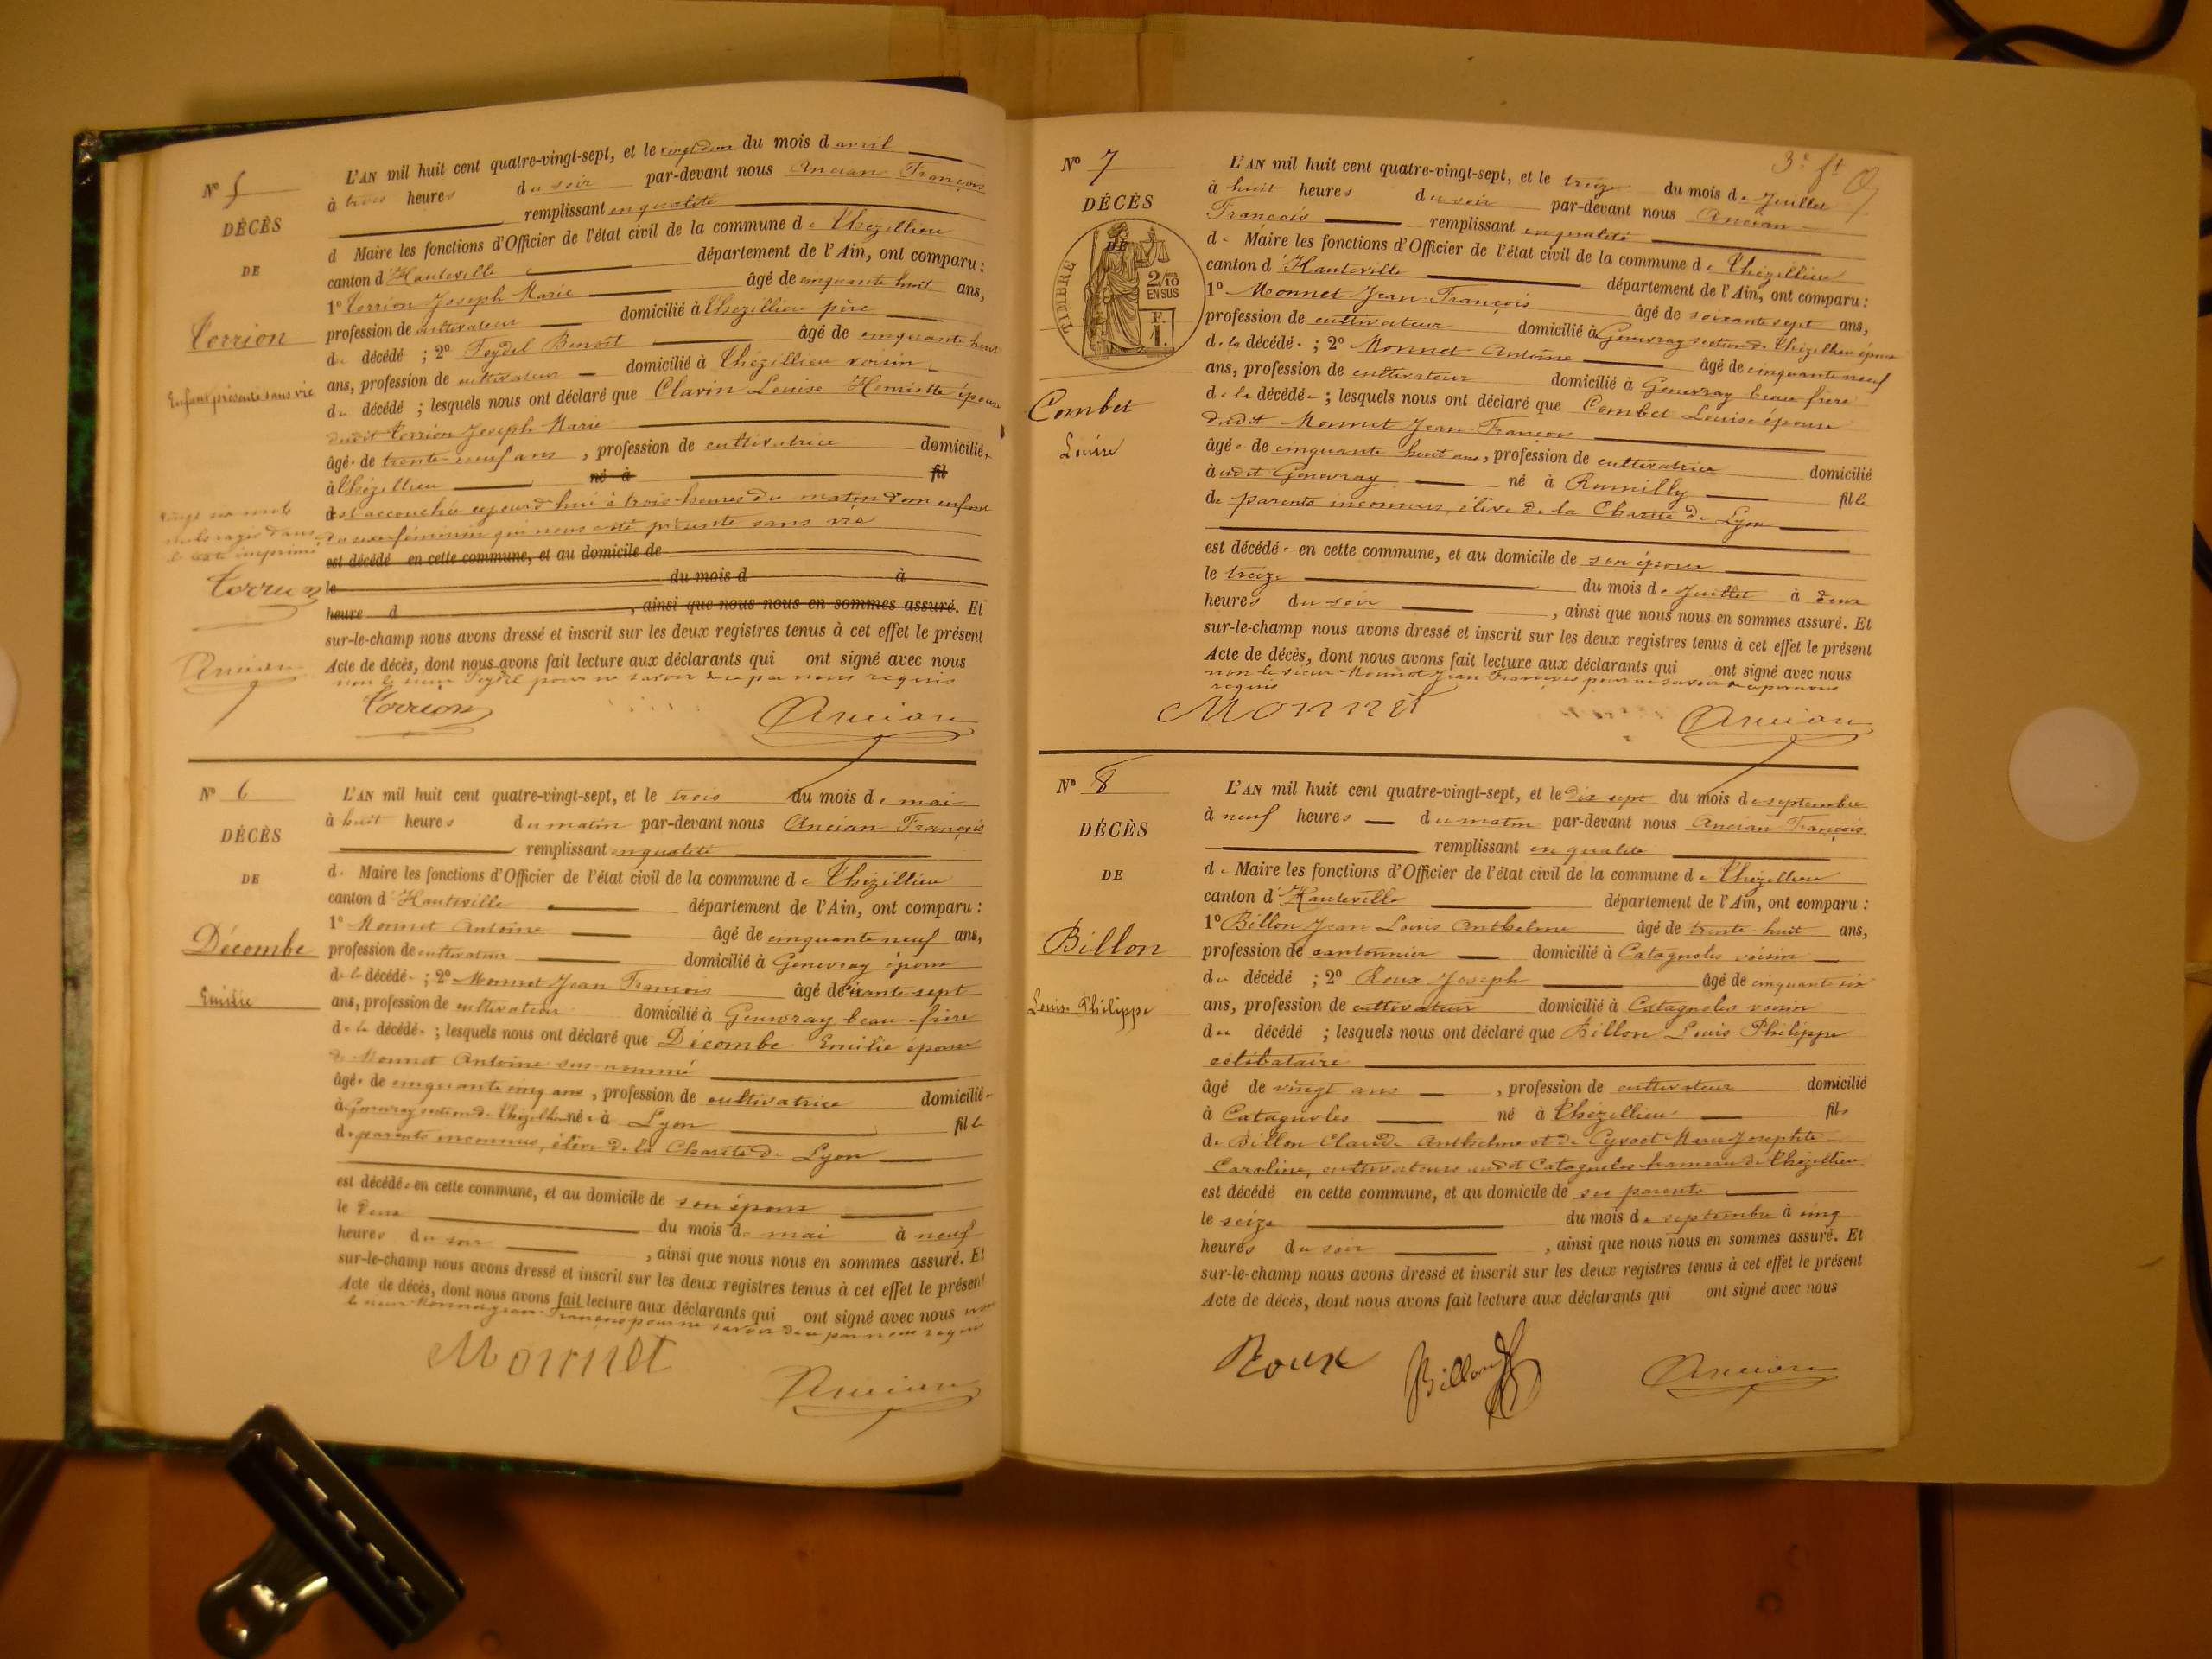 N° 5
DÉCÈS
DE
Corrion
Enfant présenté sans vie
L'AN mil huit cent quatre-vingt-sept, et le vingt deux du mois d avril
à trois heures du soir par-devant nous Ancian François
remplissant en qualité
d Maire les fonctions d'Officier de l'état civil de la commune de Thézillieu
canton d'Hauteville département de l'Ain, ont comparu :
1° Corrion Joseph Marie âgé de cinquante huit ans,
profession de cultivateur domicilié à Thézillieu père
du décédé ; 2° Benoît âgé de cinquante huit
ans, profession de cultivateur domicilié à Thézillieu voisin
du décédé ; lesquels nous ont déclaré que Clavin Louise Henriette épouse
dudit Corrion Joseph Marie
âgée de trente-neuf ans, profession de cultivatrice domiciliée
à Thézillieu né à fil
est accouchée aujourd'hui à trois heures du matin d'un enfant
du sexe féminin qui nous a été présenté sans vie
est décédé en cette commune, et au domicile de
le du mois d à
heure d , ainsi que nous nous en sommes assuré. Et
sur-le-champ nous avons dressé et inscrit sur les deux registres tenus à cet effet le présent
Acte de décès, dont nous avons fait lecture aux déclarants qui ont signé avec nous
non le sieur pour ne savoir de ce par nous requis
Vingt six mots
surchargés dans
le texte imprimé
Corrion
Ancian
Corrion Ancian
N° 6
DÉCÈS
DE
Décombe
Emilie
L'AN mil huit cent quatre-vingt-sept, et le trois du mois de mai
à huit heures du matin par-devant nous Ancian François
remplissant en qualité
de Maire les fonctions d'Officier de l'état civil de la commune de Thézillieu
canton d'Hauteville département de l'Ain, ont comparu :
1° Monnet Antoine âgé de cinquante neuf ans,
profession de cultivateur domicilié à Genevray époux
de la décédée ; 2° Monnet Jean François âgé de soixante sept
ans, profession de cultivateur domicilié à Genevray beau-frère
de la décédée ; lesquels nous ont déclaré que Décombe Emilie épouse
de Monnet Antoine sus-nommé
âgée de cinquante cinq ans, profession de cultivatrice domiciliée
à Genevray section de Thézillieu née à Lyon fille
de parents inconnus, élève de la Charité de Lyon
est décédée en cette commune, et au domicile de son époux
le deux du mois de mai à neuf
heures du soir , ainsi que nous nous en sommes assuré. Et
sur-le-champ nous avons dressé et inscrit sur les deux registres tenus à cet effet le présent
Acte de décès, dont nous avons fait lecture aux déclarants qui ont signé avec nous non
le sieur Monnet Jean-François pour ne savoir de ce par nous requis
Monnet Ancian
3e ft
N° 7
DÉCÈS
TIMBRE
2/10 EN SUS
F. 1.
Combet
Louise
L'AN mil huit cent quatre-vingt-sept, et le treize du mois de Juillet
à huit heures du soir par-devant nous Ancian
François remplissant en qualité
de Maire les fonctions d'Officier de l'état civil de la commune de Thézillieu
canton d'Hauteville département de l'Ain, ont comparu :
1° Monnet Jean-François âgé de soixante sept ans,
profession de cultivateur domicilié à Genevray section de Thézillieu époux
de la décédée ; 2° Monnet Antoine âgé de cinquante neuf
ans, profession de cultivateur domicilié à Genevray beau frère
de la décédée ; lesquels nous ont déclaré que Combet Louise épouse
dudit Monnet Jean-François
âgée de cinquante huit ans, profession de cultivatrice domicilié
à udit Genevray né à Rumilly fille
de parents inconnus, élève de la Charité de Lyon
est décédée en cette commune, et au domicile de son époux
le treize du mois de Juillet à deux
heures du soir , ainsi que nous nous en sommes assuré. Et
sur-le-champ nous avons dressé et inscrit sur les deux registres tenus à cet effet le présent
Acte de décès, dont nous avons fait lecture aux déclarants qui ont signé avec nous
non le sieur Monnet Jean François pour ne savoir de ce par nous
requis
Monnet Ancian
N° 8
DÉCÈS
DE
Billon
Louis-Philippe
L'AN mil huit cent quatre-vingt-sept, et le dix sept du mois de septembre
à neuf heures du matin par-devant nous Ancian François
remplissant en qualité
de Maire les fonctions d'Officier de l'état civil de la commune de Thézillieu
canton d'Hauteville département de l'Ain, ont comparu :
1° Billon Jean Louis Anthelme âgé de trente-huit ans,
profession de cantonnier domicilié à Catagnoles voisin
du décédé ; 2° Roux Joseph âgé de cinquante six
ans, profession de cultivateur domicilié à Catagnoles voisin
du décédé ; lesquels nous ont déclaré que Billon Louis-Philippe
célibataire
âgé de vingt ans , profession de cultivateur domicilié
à Catagnoles né à Thézillieu fils
de Billon Claude Anthelme et de Marie Josephte
Caroline, cultivateurs audit Catagnoles hameau de Thézillieu
est décédé en cette commune, et au domicile de ses parents
le seize du mois de septembre à cinq
heures du soir , ainsi que nous nous en sommes assuré. Et
sur-le-champ nous avons dressé et inscrit sur les deux registres tenus à cet effet le présent
Acte de décès, dont nous avons fait lecture aux déclarants qui ont signé avec nous
Roux Billon Ancian